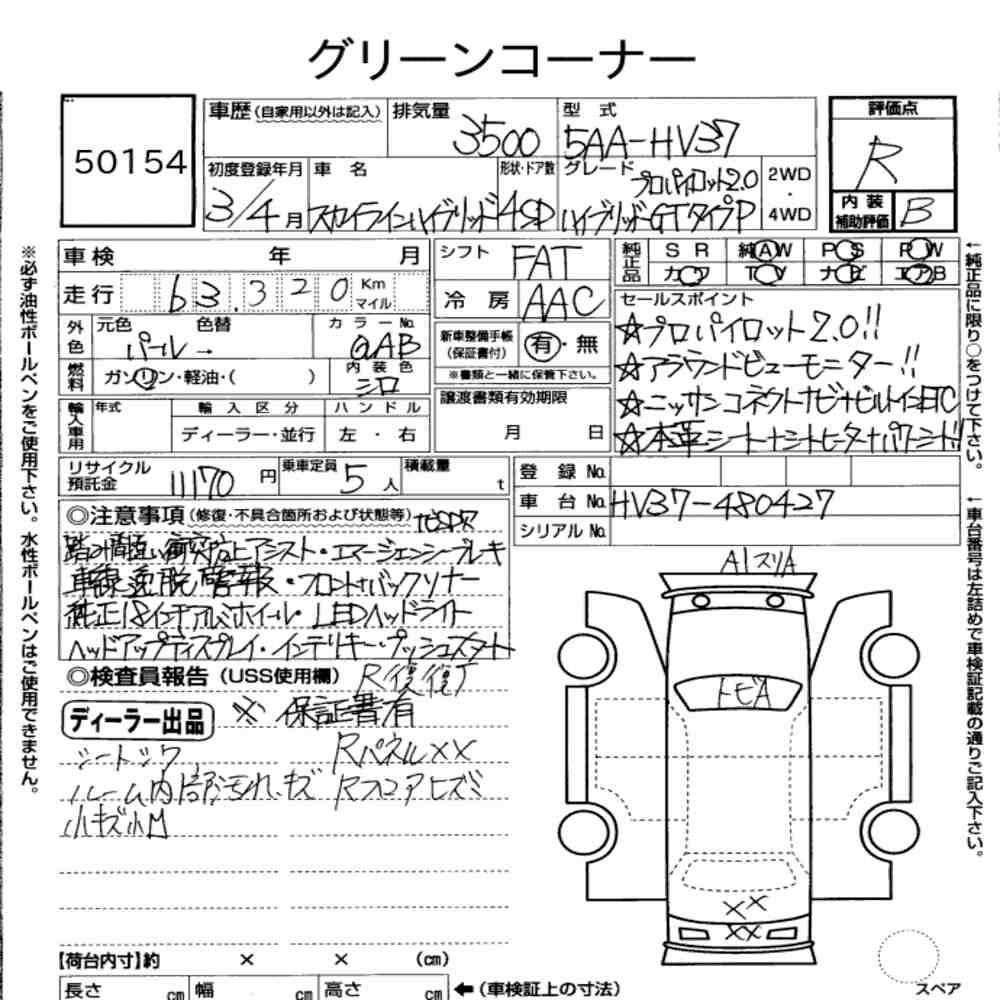 グリーンコーナー
50154
車歴 (自家用以外は記入)
排気量 3500
型式 5AA-HV37
評価点 R
初度登録年月 3/4月
車名 スカイラインハイブリッド
形状・ドア数 4SD
グレード プロパイロット2.0
ハイブリッドGTタイプP
2WD・4WD
内装補助評価 B
車検 年 月
シフト FAT
純正品 SR 純AW PS PW
カワ TV ナビ エアB
走行 63,320 Km マイル
冷房 AAC
セールスポイント
☆プロパイロット2.0!!
☆アラウンドビューモニター!!
☆ニッサンコネクトナビ+ビルトインETC
☆本革シート+シートヒーター+パワーシート!!
外色 元色 パール→ 色替
カラーNo. QAB
新車整備手帳(保証書付) 有・無
※書類と一緒に保管下さい。
燃料 ガソリン・軽油・( )
内装色 シロ
譲渡書類有効期限
月 日
輸入車用 年式 輸入区分 ハンドル
ディーラー・並行 左・右
リサイクル預託金 11170円
乗車定員 5人
積載量 t
登録No.
車台No. HV37-480427
シリアルNo.
◎注意事項 (修復・不具合箇所および状態等)
踏み間違い衝突防止アシスト・エマージェンシーブレーキ
車線逸脱警報・フロント+バックソナー
純正18インチアルミホイール・LEDヘッドライト
ヘッドアップディスプレイ・インテリキー・プッシュスタート
◎検査員報告 (USS使用欄) R復復歴
ディーラー出品 ※保証書有
シートシワ
Rパネル××
ルーム内部汚れ、キズ
Rフロアヒズミ
小キズ小凹
A1スリA
トビA
××
××
【荷台内寸】約 × × (cm)
長さ cm 幅 cm 高さ cm
←(車検証上の寸法)
スペア
※必ず油性ボールペンをご使用下さい。水性ボールペンはご使用できません。
←純正品に限り○をつけて下さい。
←車台番号は左詰めで車検証記載の通りご記入下さい。